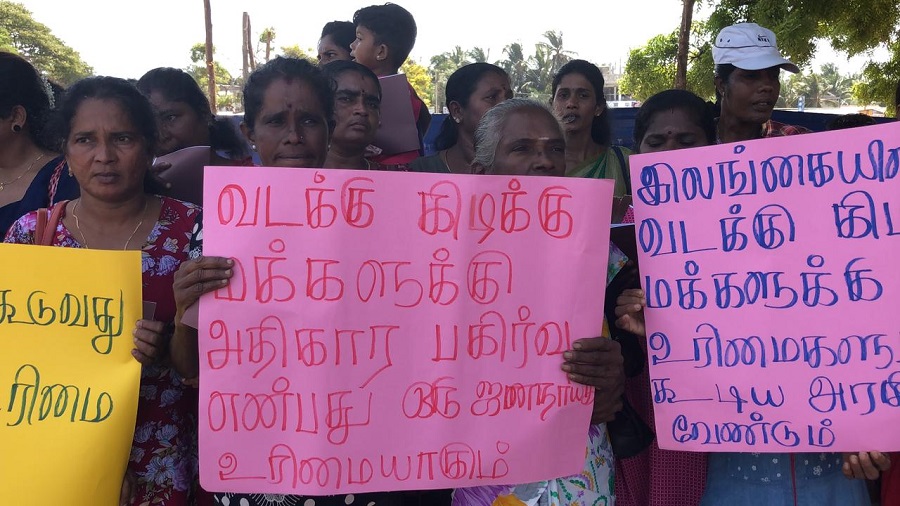 கூடுவது
உரிமை
வடக்கு கிழக்கு
மக்களுக்கு
அதிகார பகிர்வு
என்பது ஒரு ஜனநாயக
உரிமையாகும்
இலங்கையின்
வடக்கு
மக்களுக்கு
உரிமைகளுடன்
கூடிய
வேண்டும்